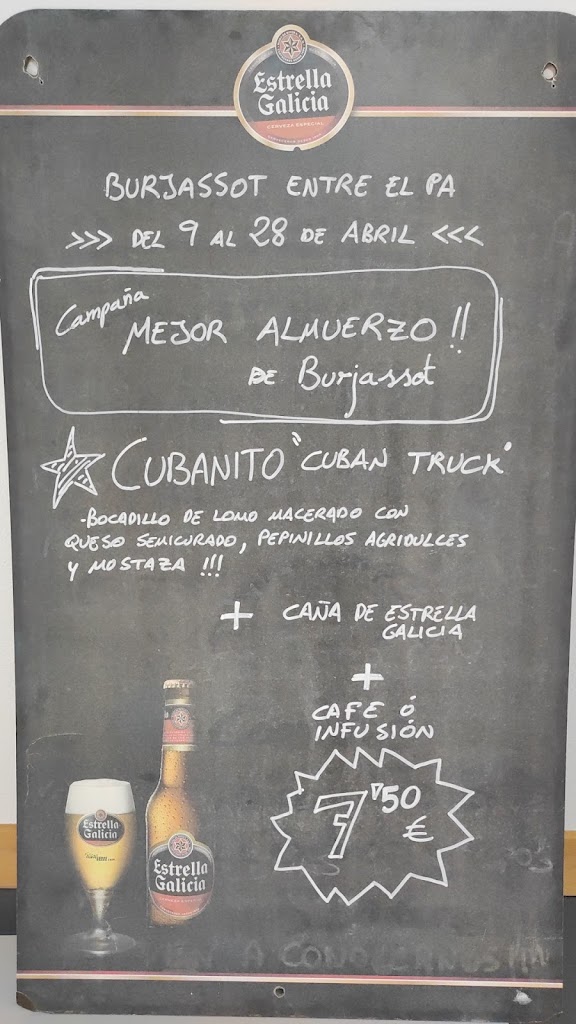 Estrella
Galicia
CERVEZA ESPECIAL
BURJASSOT ENTRE EL PA
>>> DEL 9 AL 28 DE ABRIL <<<
Campaña
MEJOR ALMUERZO!!
DE Burjassot
CUBANITO "CUBAN TRUCK"
-BOCADILLO DE LOMO MACERADO CON
QUESO SEMICURADO, PEPINILLOS AGRIDULCES
Y MOSTAZA !!!
+ CAÑA DE ESTRELLA
GALICIA
+
CAFE Ó
INFUSIÓN
7'50
€
Estrella
Galicia
Estrella
Galicia